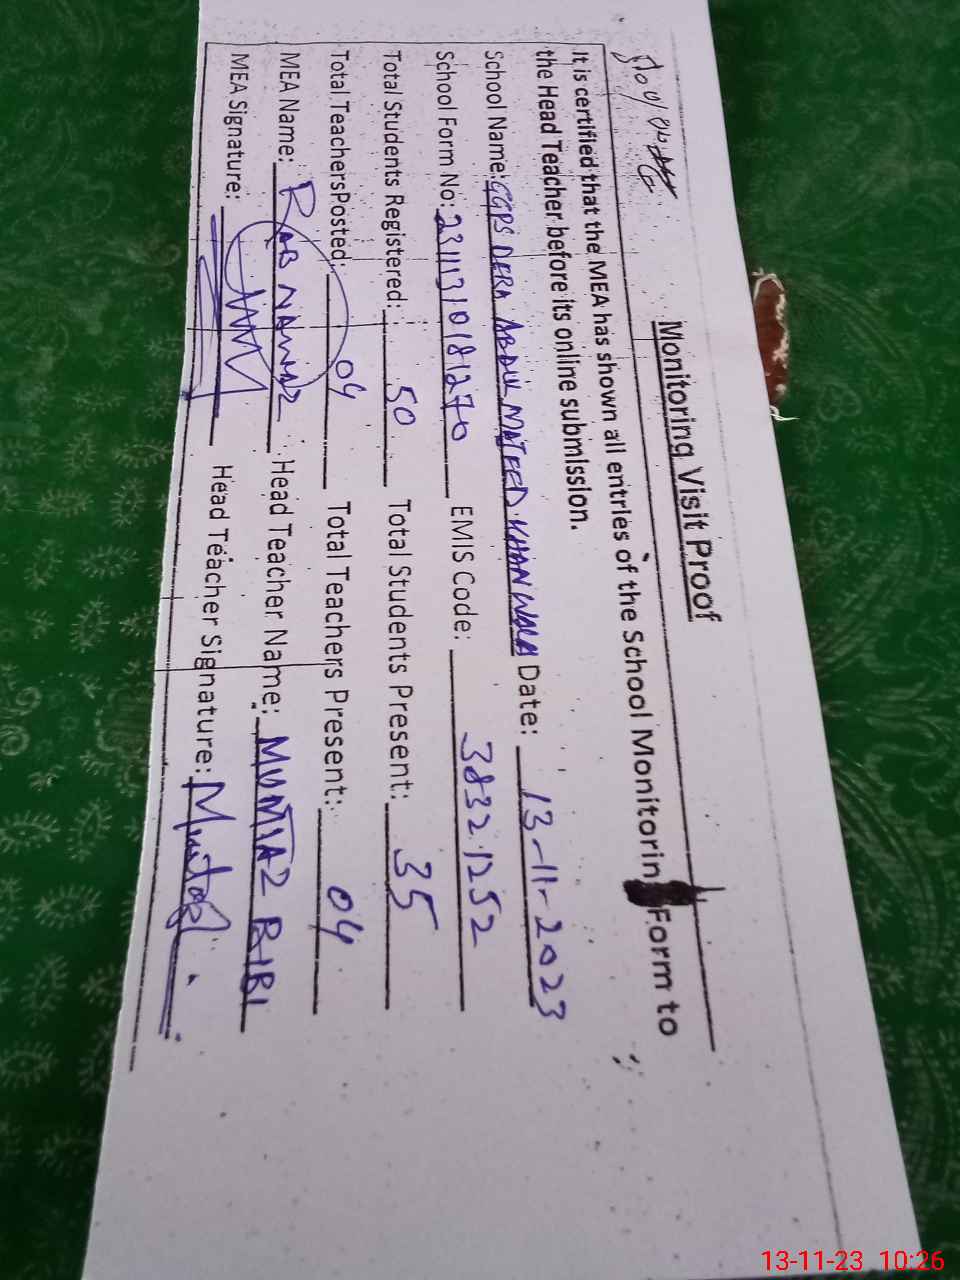 Monitoring Visit Proof
It is certified that the MEA has shown all entries of the School Monitorin Form to
the Head Teacher before its online submission.
School Name: GGPS DERA ABDUL MAJEED KHAN WALA Date: 13-11-2023
School Form No: 23111310181270 EMIS Code: 38321252
Total Students Registered: 50 Total Students Present: 35
Total TeachersPosted: 04 Total Teachers Present: 04
MEA Name: RAB NAWAZ Head Teacher Name: MUMTAZ BIBI
MEA Signature: Head Teacher Signature: Mumtaz
13-11-23 10:26